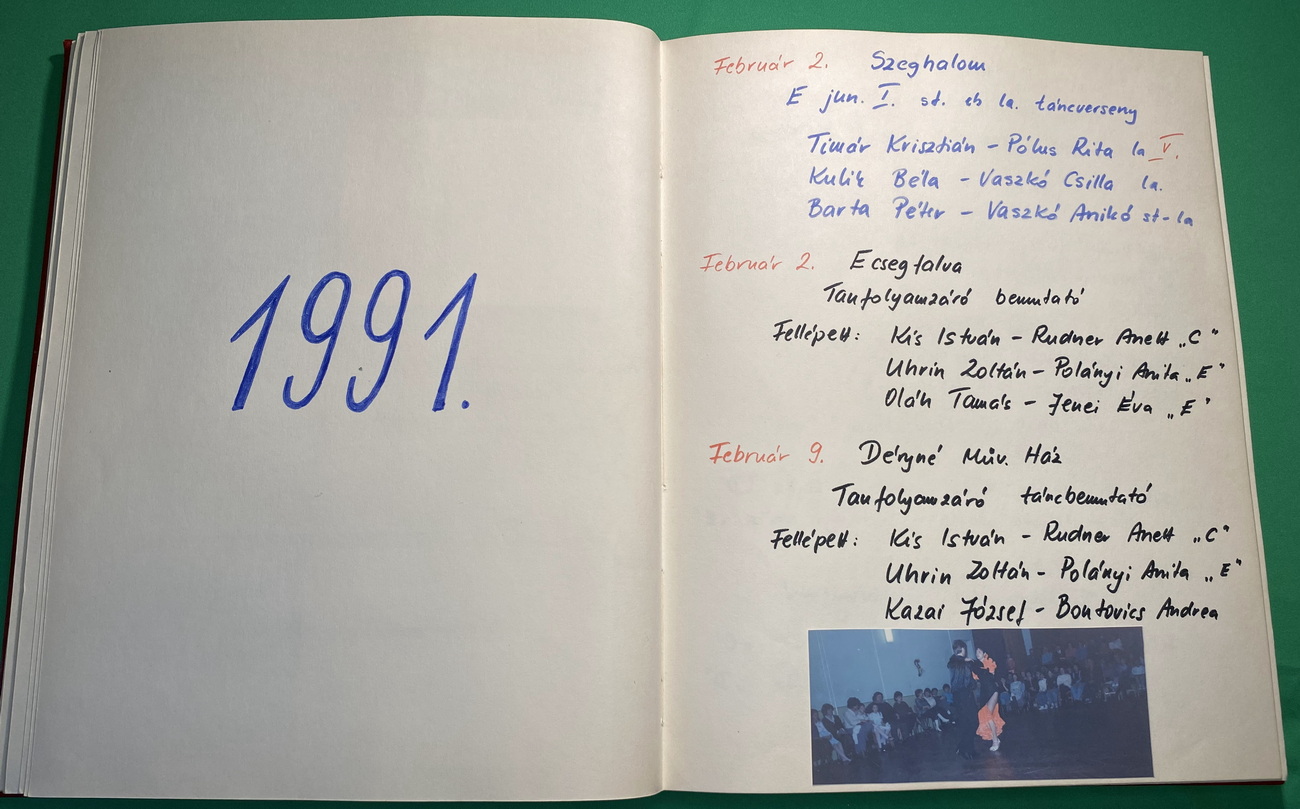 1991.
Február 2. Szeghalom
E jun. I. st. és la. táncverseny
Tímár Krisztián - Pólus Rita la V.
Kulik Béla - Vaszkó Csilla la.
Barta Péter - Vaszkó Anikó st-la
Február 2. Ecsegfalva
Tanfolyamzáró bemutató
Fellépett: Kis István - Rudner Anett „C"
Uhrin Zoltán - Polányi Anita „E"
Oláh Tamás - Jenei Éva „E"
Február 9. Déryné Műv. Ház
Tanfolyamzáró táncbemutató
Fellépett: Kis István - Rudner Anett „C"
Uhrin Zoltán - Polányi Anita „E"
Kazai József - Bontovics Andrea